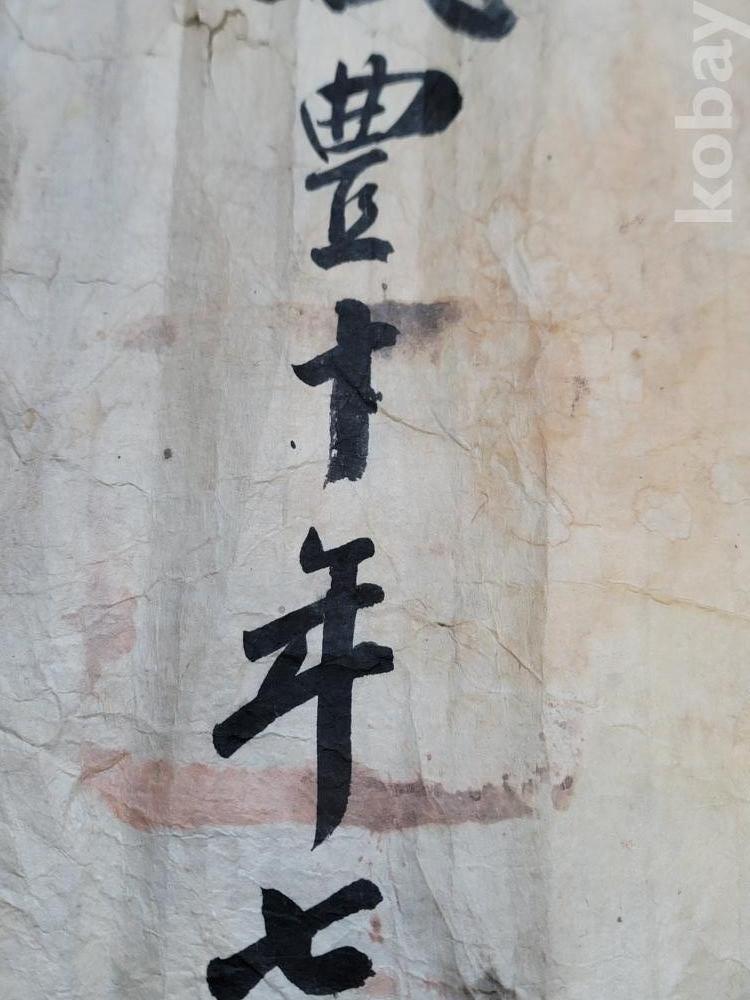 豊十年七
kobay